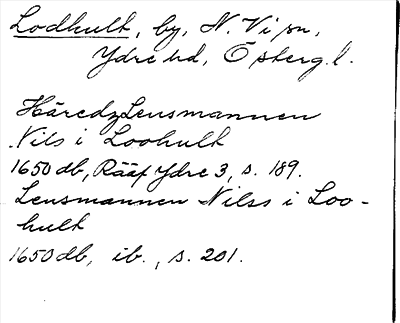 Lodhult, by, N. Vi sn,
Ydre hd, Östergl.
HäredzLensmannen
Nils i Loohult
1650 db, Rääf Ydre 3, s. 189.
Lensmannen Nilss i Loo-
hult
1650 db, ib., s. 201.